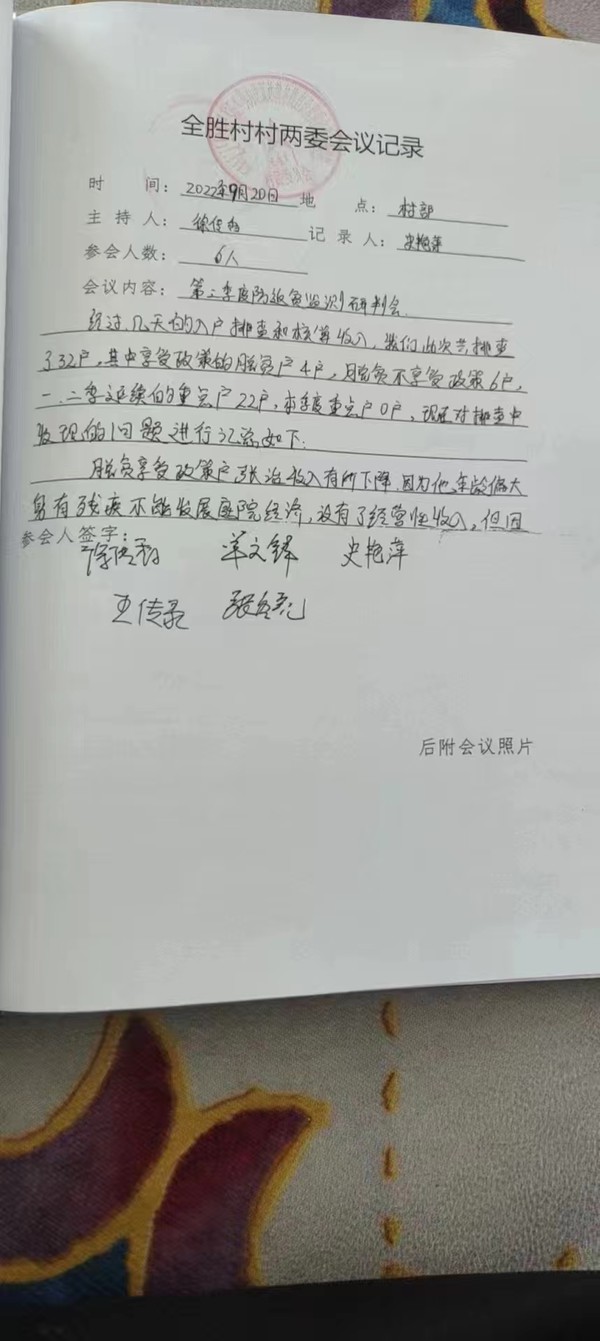 全胜村村两委会议记录
时 间：2022年9月20日 地 点：村部
主 持 人： 记 录 人：史艳萍
参会人数：6人
会议内容：第三季度防返贫监测研判会.
经过几天的入户排查和核算收入，我们此次共排查
了32户，其中享受政策的脱贫户4户，脱贫不享受政策6户，
一.二季延续的重点户22户，本季度重点户0户，现在对排查中
发现的问题进行汇总如下：
脱贫享受政策户张治收入有所下降.因为他年龄偏大
身有残疾不能发展庭院经济，没有了经营性收入，但因
参会人签字：
史艳萍
王传录
后附会议照片